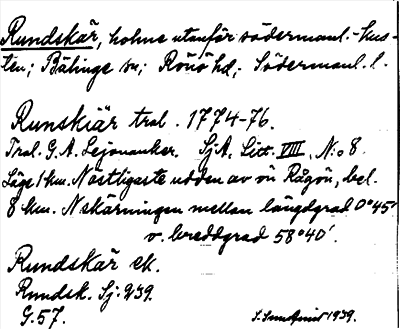 Rundskär, holme utanför södermanl.-kus-
ten; Bälinge sn; Rönö hd; Södermanl. l.
Runskiär tral. 1774-76.
Tral. G. A. Lejonanker. SjA. Litt. VIII, N:o 8.
Läge 1 km. N ostligaste udden av ön Rågön, bel.
8 km. N skärningen mellan längdgrad 0°45'
o. breddgrad 58°40'.
Rundskär ek.
Rundsk. Sj: 939.
G. 57.
1939.